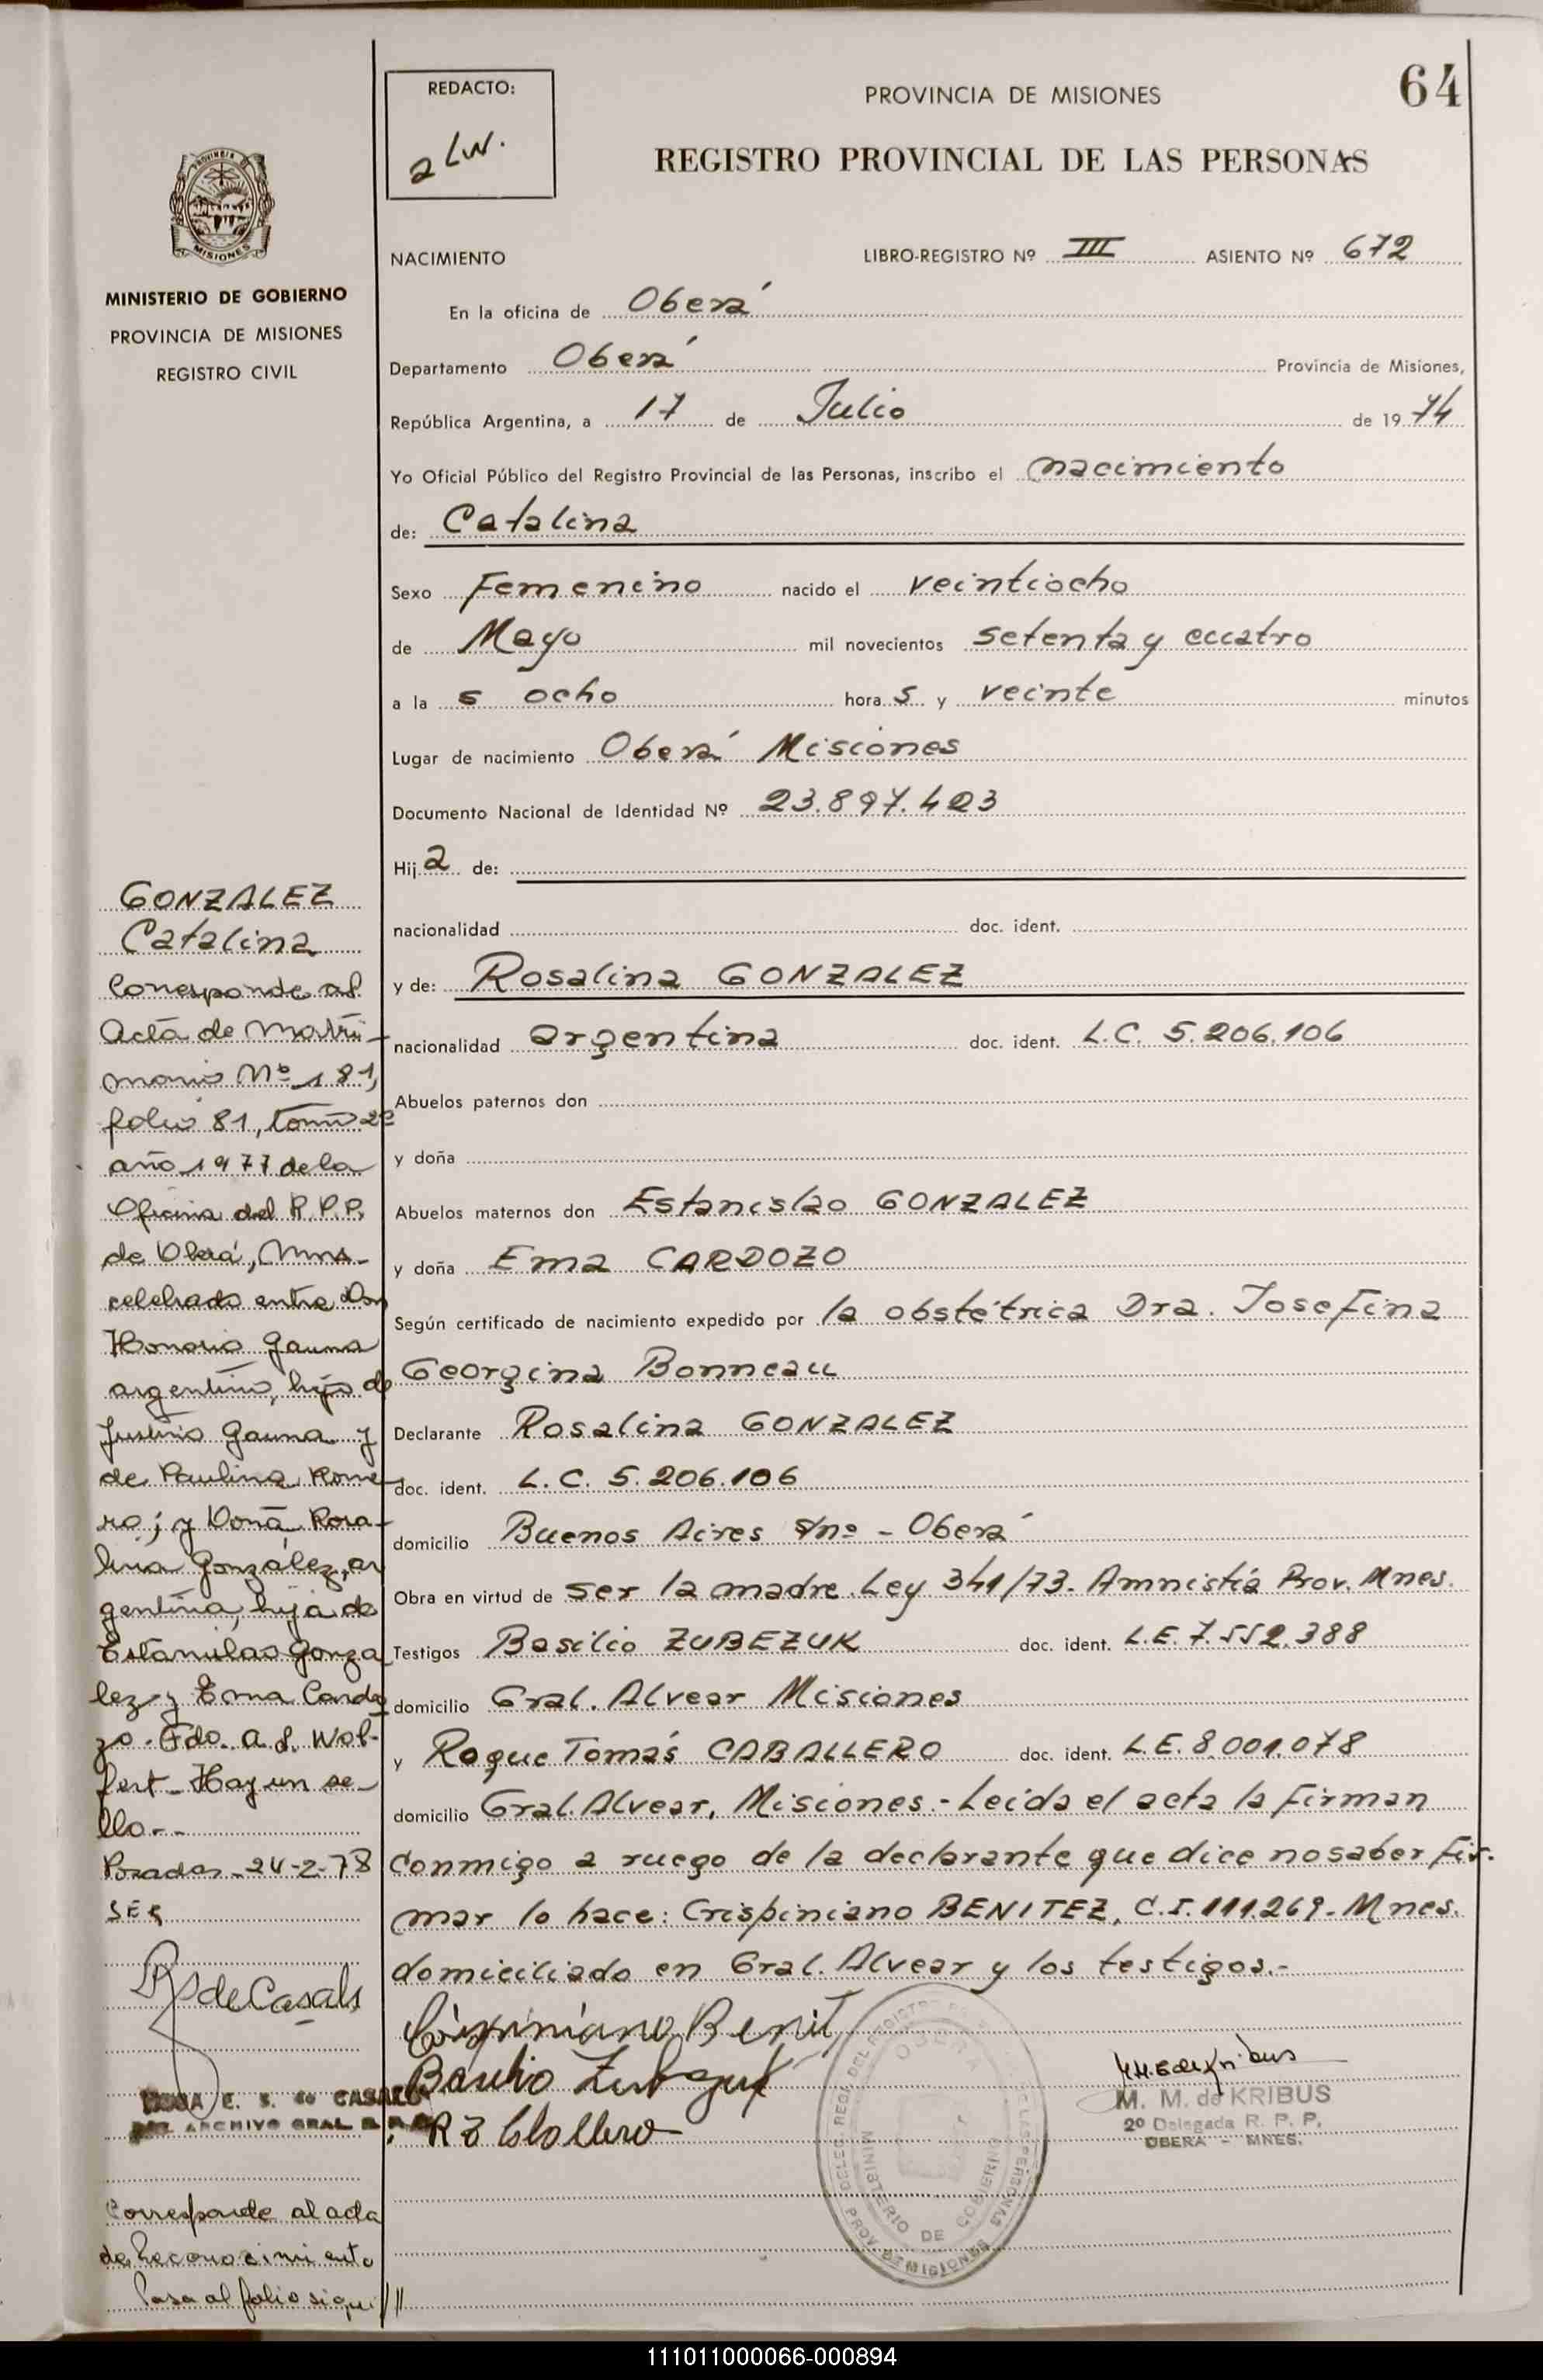 64
REDACTO:
PROVINCIA DE MISIONES
REGISTRO PROVINCIAL DE LAS PERSONAS
MINISTERIO DE GOBIERNO
PROVINCIA DE MISIONES
REGISTRO CIVIL
NACIMIENTO LIBRO-REGISTRO Nº III ASIENTO Nº 672
En la oficina de Oberá
Departamento Oberá Provincia de Misiones,
República Argentina, a 17 de Julio de 1974
Yo Oficial Público del Registro Provincial de las Personas, inscribo el nacimiento
de: Catalina
Sexo Femenino nacido el veintiocho
de Mayo mil novecientos setenta y cuatro
a la s ocho hora s y veinte minutos
Lugar de nacimiento Oberá Misiones
Documento Nacional de Identidad Nº 23.897.423
Hij a de:
nacionalidad doc. ident.
y de: Rosalina GONZALEZ
nacionalidad argentina doc. ident. L.C. 5.206.106
Abuelos paternos don
y doña
Abuelos maternos don Estanislao GONZALEZ
y doña Ema CARDOZO
Según certificado de nacimiento expedido por la obstétrica Dra. Josefina
Georgina Bonneau
Declarante Rosalina GONZALEZ
doc. ident. L.C. 5.206.106
domicilio Buenos Aires s/nº - Oberá
Obra en virtud de ser la madre. Ley 341/73. Amnistía Prov. Mnes.
Testigos Basilio ZUBEZUK doc. ident. L.E. 7.552.388
domicilio Gral. Alvear Misiones
y Roque Tomás CABALLERO doc. ident. L.E. 8.001.078
domicilio Gral. Alvear, Misiones.- Leída el acta la firman
conmigo a ruego de la declarante que dice no saber fir-
mar lo hace: Crispiniano BENITEZ, C.I. 111.269. Mnes.
domiciliado en Gral. Alvear y los testigos.-
Crispiniano Benit
Basilio Zubezuk
M. M. de KRIBUS
2º Delegada R. P. P.
OBERA - MNES.
MINISTERIO DE GOBIERNO
PROV. DE MISIONES
GONZALEZ
Catalina
Corresponde al
Acta de Matri-
monio Nº 181,
folio 81, tomo 2º
año 1977 de la
Oficina del R.P.P.
de Oberá, Mnes.
celebrado entre Don
Honorio Gauna
argentino, hijo de
Justino Gauna y
de Paulina Rome-
ro; y Doña Rosa-
lina González, ar
gentina, hija de
Estanislao Gonza
lez y Ema Cardo
zo. Fdo. A. L. Wol-
fert - Hay un se-
llo.-
Posadas - 24-2-78
de Casals
E. S. de CASALS
ARCHIVO GRAL
Corresponde al acta
de Reconocimiento
Pasa al folio sigui //
111011000066-000894